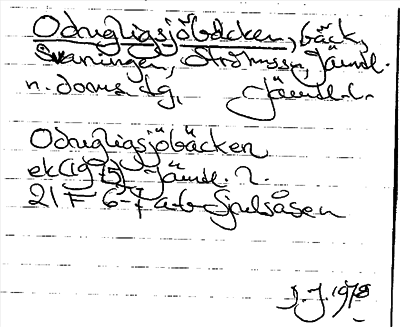 Odrygligsjöbäcken, bäck,
Svaningen, Ströms sn, Jämtl.
n. doms dg, Jämtl. l.
Odrygligsjöbäcken
ek (1975) Jämtl. l.
21F 6-7 a-b Sjulsåsen
J. J. 1978